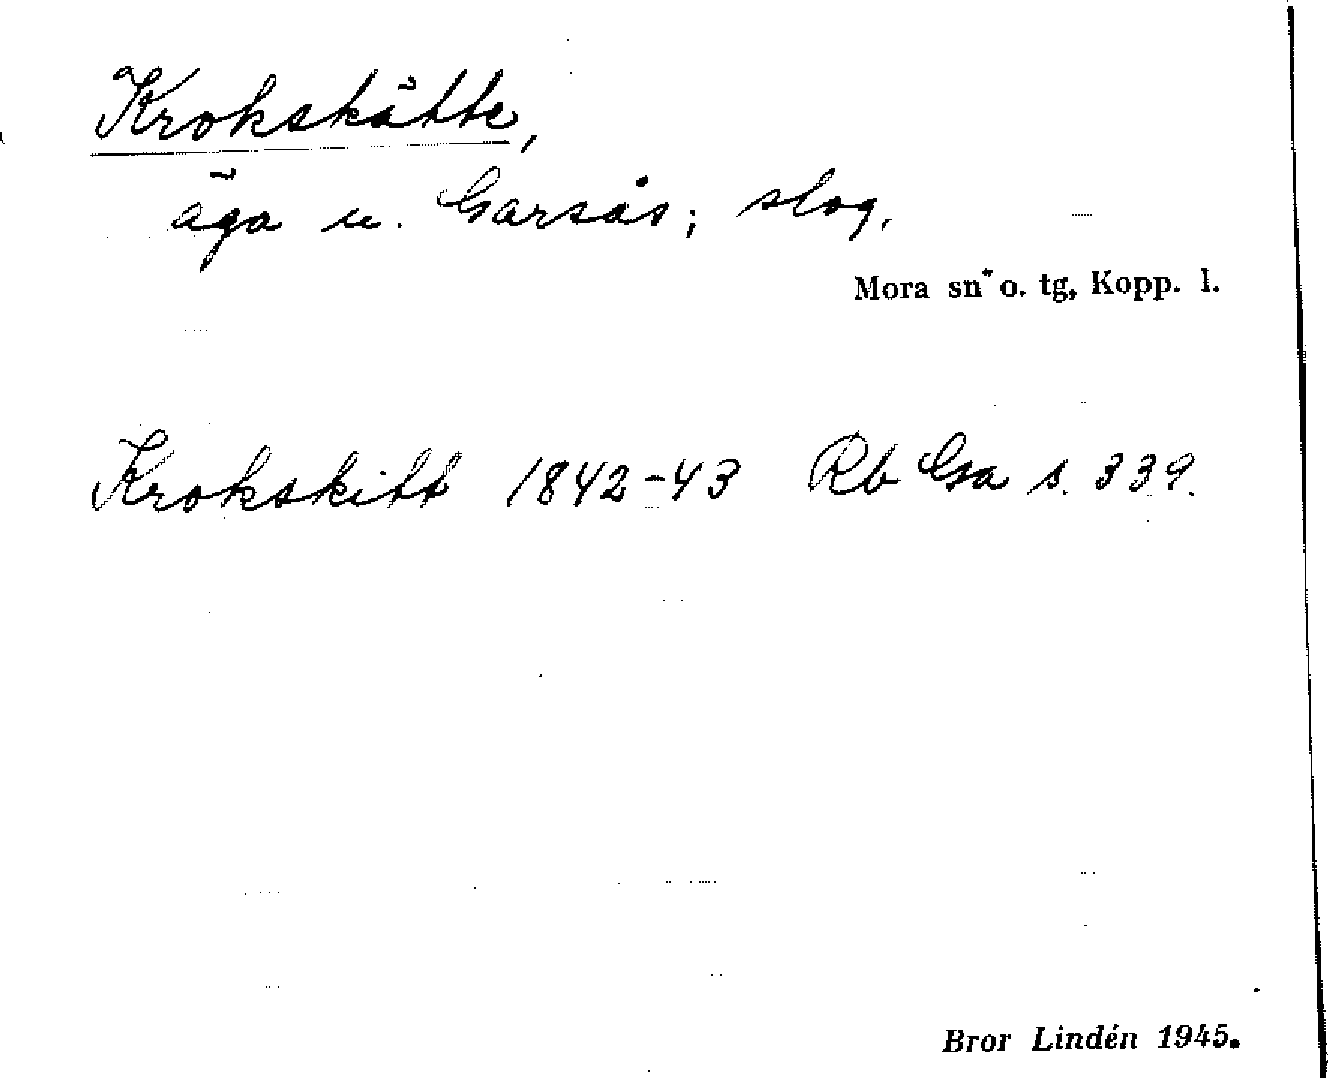 Krokskätte,
äga u. Garsås; slog.
Mora sn o. tg, Kopp. l.
Krokskitt 1842-43 Rb Ga s. 339.
Bror Lindén 1945.